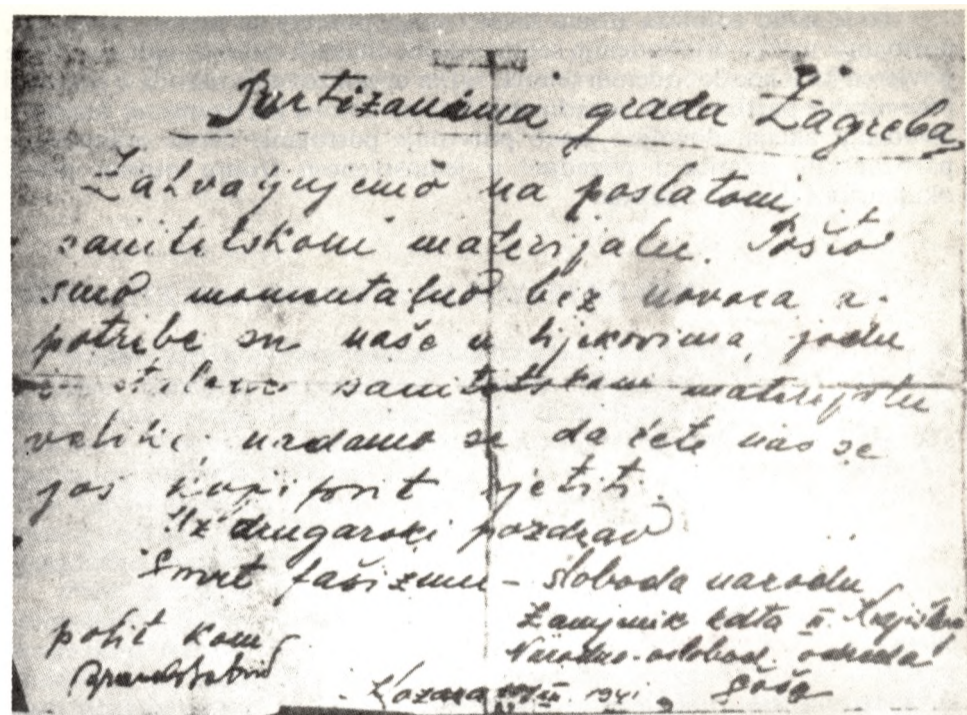 Partizanima grada Zagreba
Zahvaljujemo na poslatom
sanitetskom materijalu. Pošto
smo momentalno bez novca a
potrebe su naše u lijekovima, jodu
i sanitetskom materijalu
velike, nadamo se da ćete nas se
još koji put sjetiti.
Uz drugarski pozdrav
Smrt fašizmu - sloboda narodu
polit kom
Zamjenik kdta II.
Narodno-oslobod. odreda
Kozara 1941.
Šoša